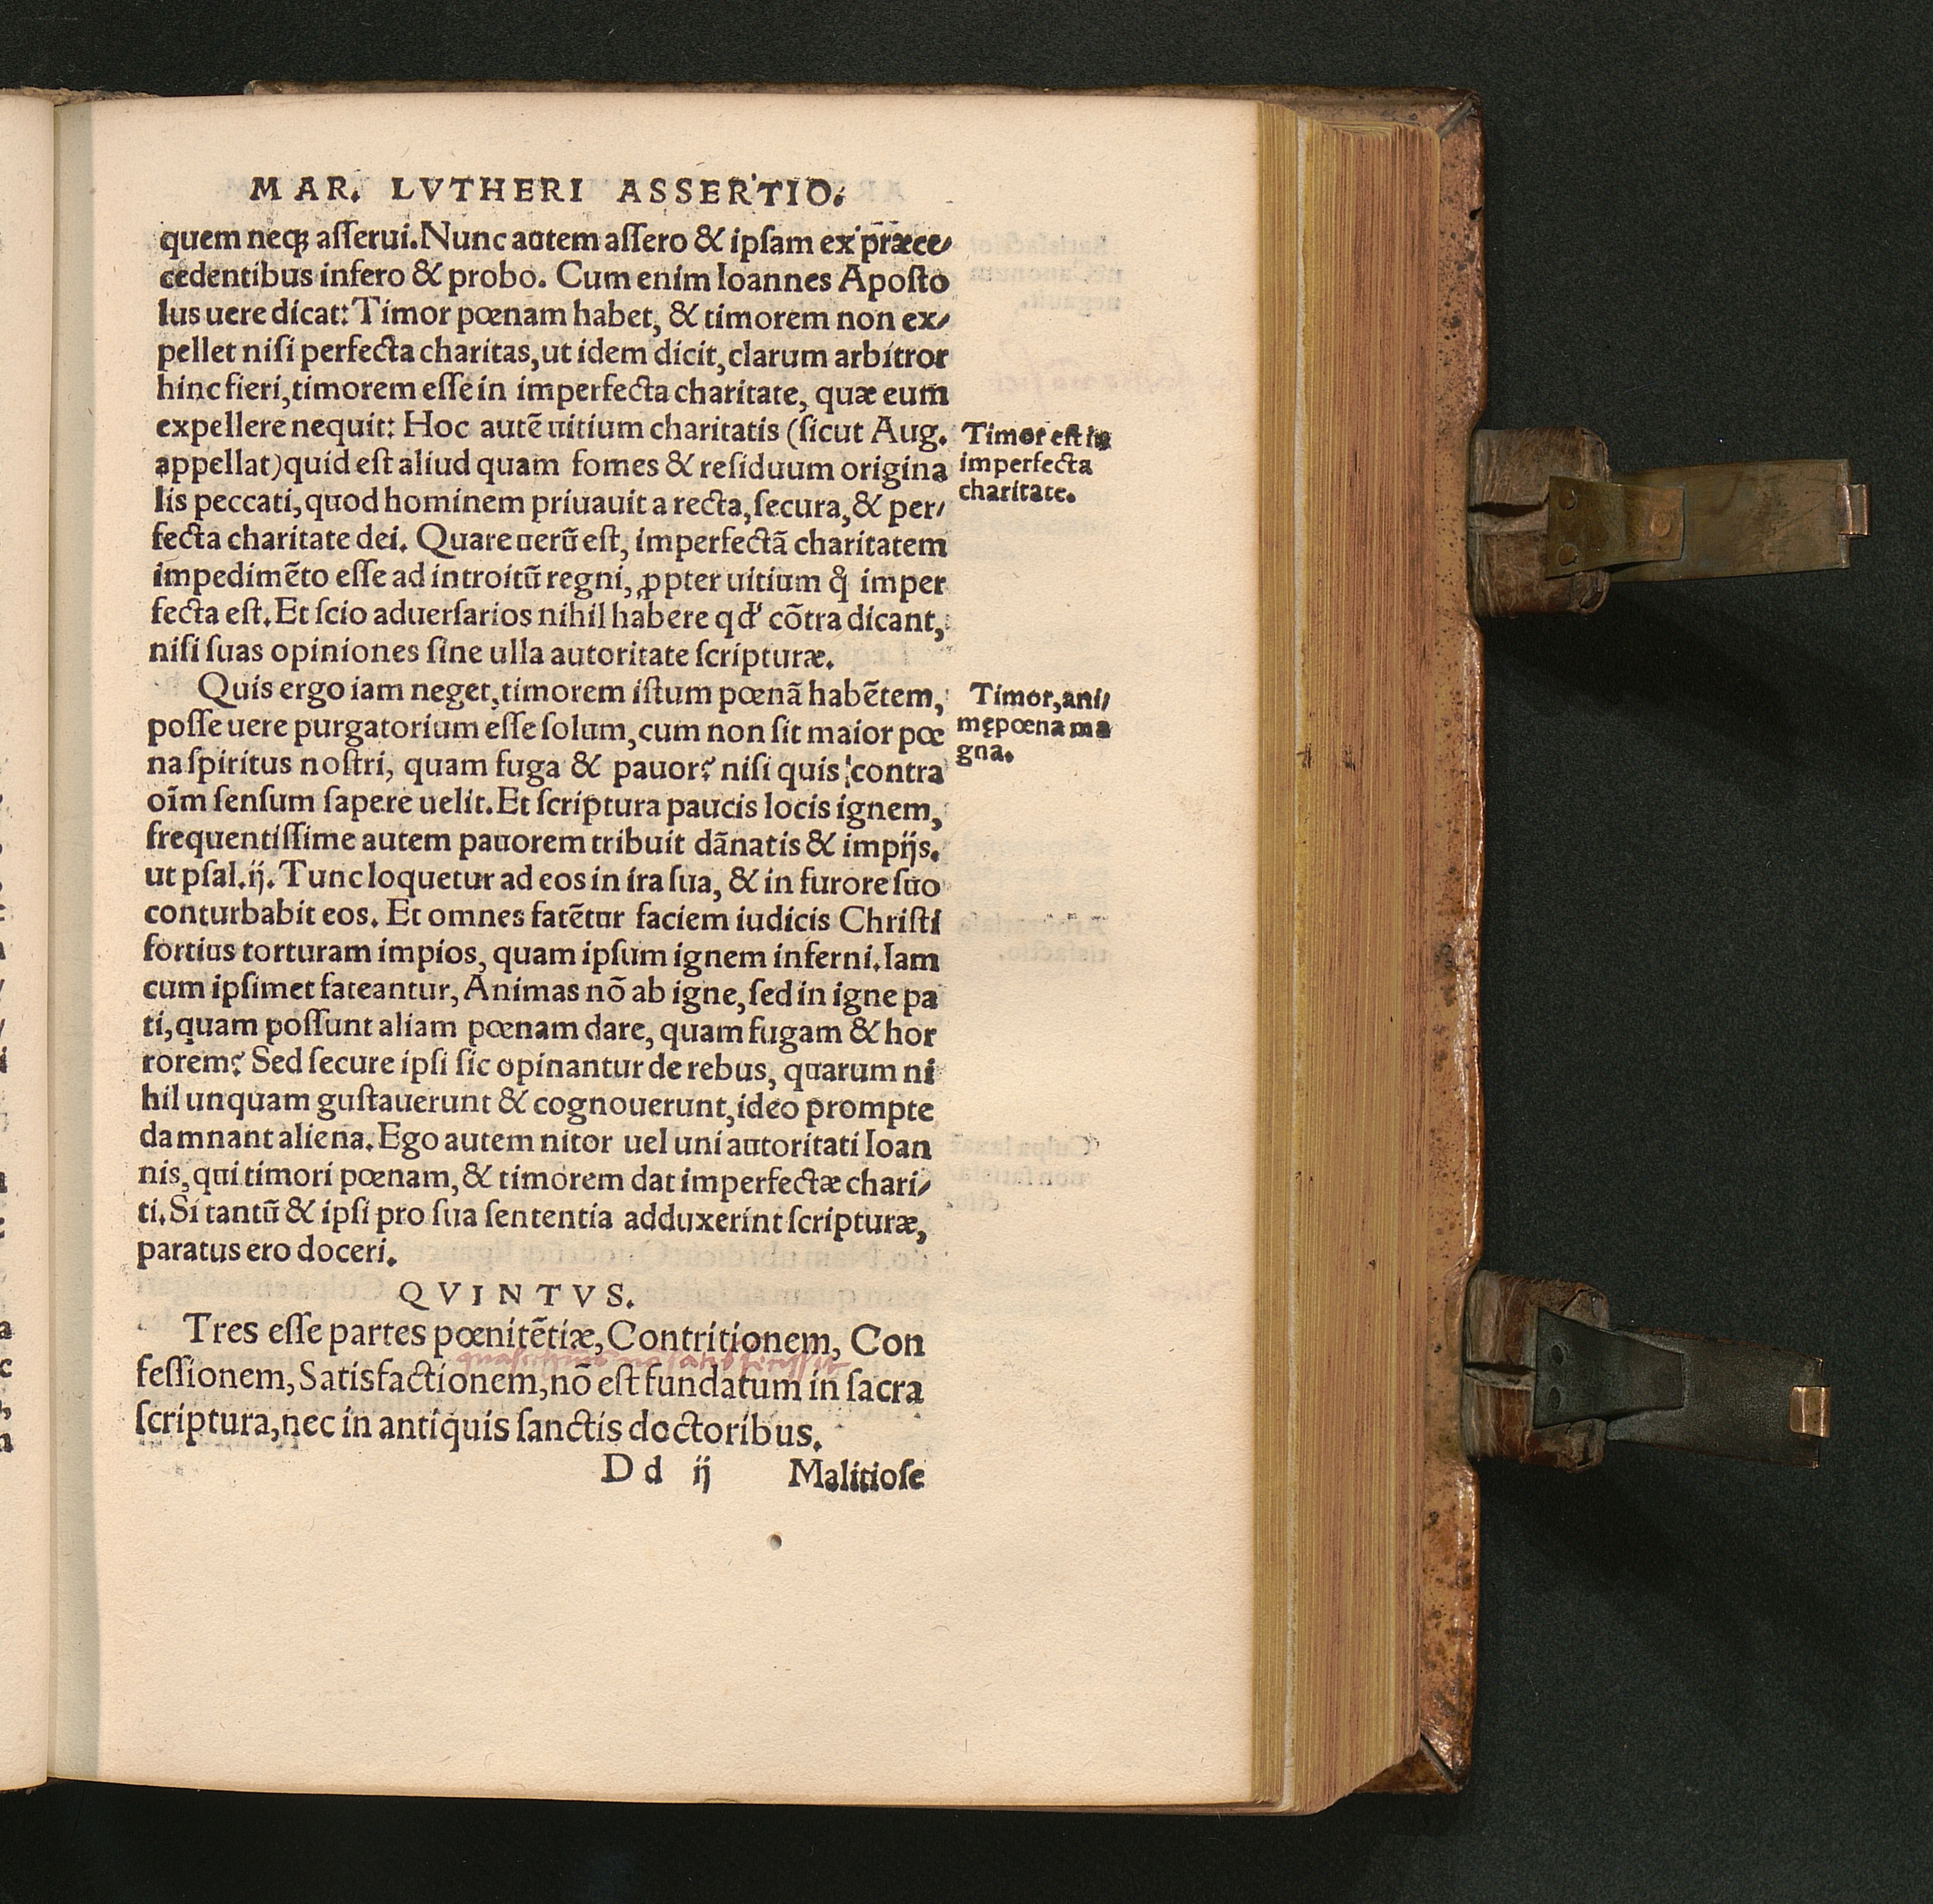 MAR. LVTHERI ASSERTIO.
quem neqꝫ aſſerui. Nunc autem aſſero & ipſam ex præce⸗
cedentibus infero & probo. Cum enim Ioannes Apoſto
lus uere dicat: Timor pœnam habet, & timorem non ex⸗
pellet niſi perfecta charitas, ut idem dicit, clarum arbitror
hinc fieri, timorem eſſe in imperfecta charitate, quæ eum
expellere nequit: Hoc autē uitium charitatis (ſicut Aug.
appellat) quid eſt aliud quam fomes & reſiduum origina
lis peccati, quod hominem priuauit a recta, ſecura, & per⸗
fecta charitate dei. Quare uerū eſt, imperfectā charitatem
impedimēto eſſe ad introitū regni, ꝓpter uitium q̊ imper
fecta eſt. Et ſcio aduerſarios nihil habere qd' cōtra dicant,
niſi ſuas opiniones ſine ulla autoritate ſcripturæ.
Timor eſt in
imperfecta
charitate.
Quis ergo iam neget, timorem iſtum pœnā habētem,
poſſe uere purgatorium eſſe ſolum, cum non ſit maior pœ
na ſpiritus noſtri, quam fuga & pauor? niſi quis contra
oīm ſenſum ſapere uelit. Et ſcriptura paucis locis ignem,
frequentiſſime autem pauorem tribuit dānatis & impijs.
ut pſal. ij. Tunc loquetur ad eos in ira ſua, & in furore ſuo
conturbabit eos. Et omnes fatētur faciem iudicis Chriſti
fortius torturam impios, quam ipſum ignem inferni. Iam
cum ipſimet fateantur, Animas nō ab igne, ſed in igne pa
ti, quam poſſunt aliam pœnam dare, quam fugam & hor
rorem? Sed ſecure ipſi ſic opinantur de rebus, quarum ni
hil unquam guſtauerunt & cognouerunt, ideo prompte
damnant aliena. Ego autem nitor uel uni autoritati Ioan
nis, qui timori pœnam, & timorem dat imperfectæ chari⸗
ti. Si tantū & ipſi pro ſua ſententia adduxerint ſcripturæ,
paratus ero doceri.
Timor, ani⸗
mę pœna ma
gna.
QVINTVS.
Tres eſſe partes pœnitētiæ, Contritionem, Con
feſſionem, Satisfactionem, nō eſt fundatum in ſacra
ſcriptura, nec in antiquis ſanctis doctoribus.
D d ij Malitioſe